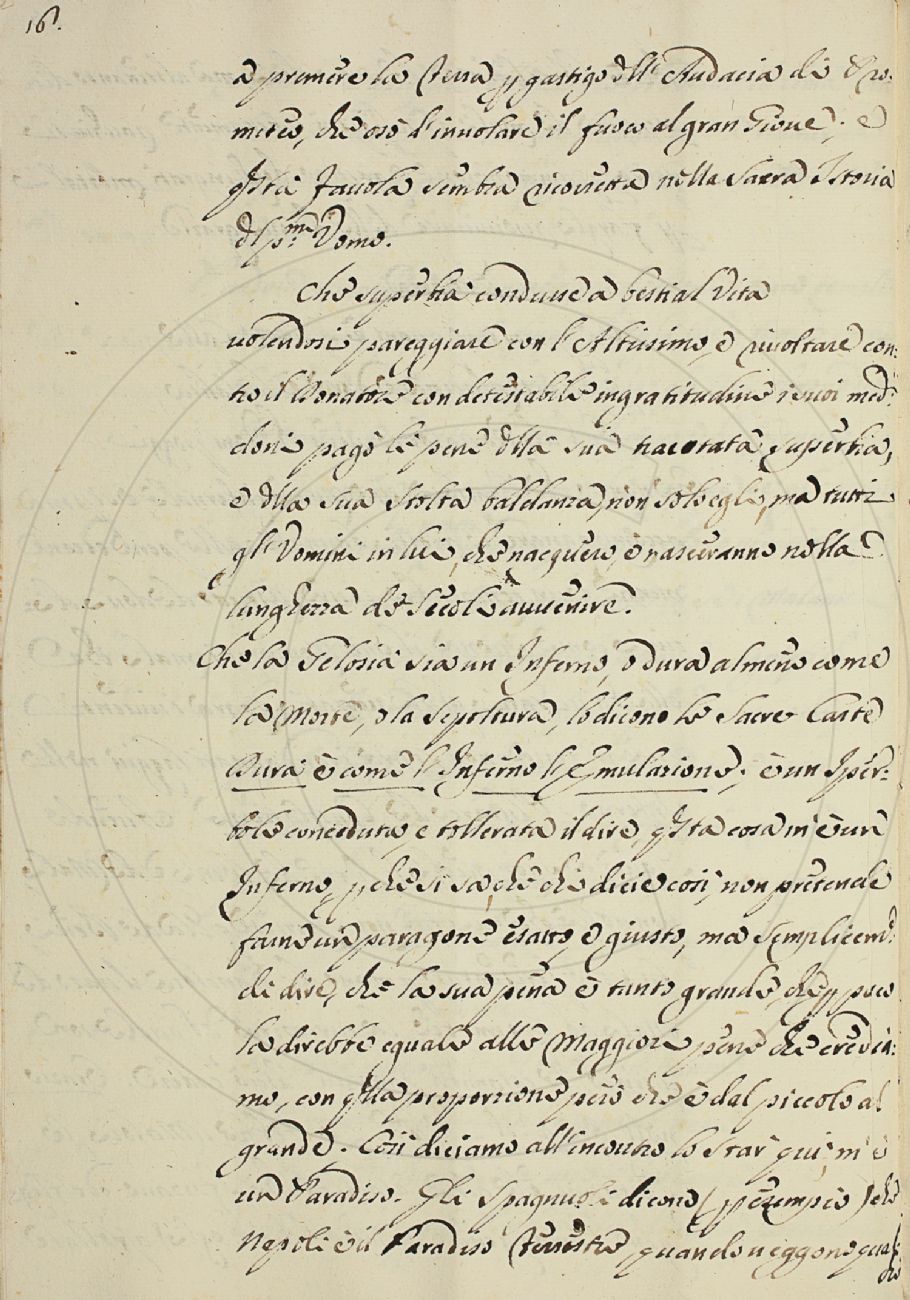 16.
a premere la Terra p gastigo dll'Audacia di Pro-
meteo, che osò d'involare il fuoco al gran Giove; e
qsta Favola sembra ricovetta nella Sacra Istoria
dl pmo Vomo.
Che superbia condusse a bestial Vita
volendosi pareggiare con l'Altissimo, e rivoltare con-
tro il Donatore con detestabile ingratitudine i suoi med.i
doni pagò le pene dlla sua tracotata superbia,
e dlla sua stolta baldanza, non solo egli, ma tutti
gl'Vomini in lui, che nacquero, e nasceranno nella
lunghezza de Secoli avvenire.
Che la Gelosia sia un Inferno, o dura almeno come
la Morte, o la Sepoltura, lo dicono le Sacre Carte
Dura è come l'Inferno l'Emulazione; è un Iper-
bole conceduta, e tollerata il dire, qsta cosa m'è un
Inferno, p che si sa, che chi dicie così, non pretende
farne un paragone esatto, e giusto, ma semplicem.e
di dire, che la sua pena è tanto grande, che p poco
la direbbe eguale alle Maggiori pene che credia-
mo, con qlla proporzione però che è dal piccolo al
grande. Così diciamo all'incontro lo star qui, m'è
un Paradiso. Gli Spagnuoli dicono (p esempio) che
Nepoli è il Paradiso Terrestre, quando veggono qual